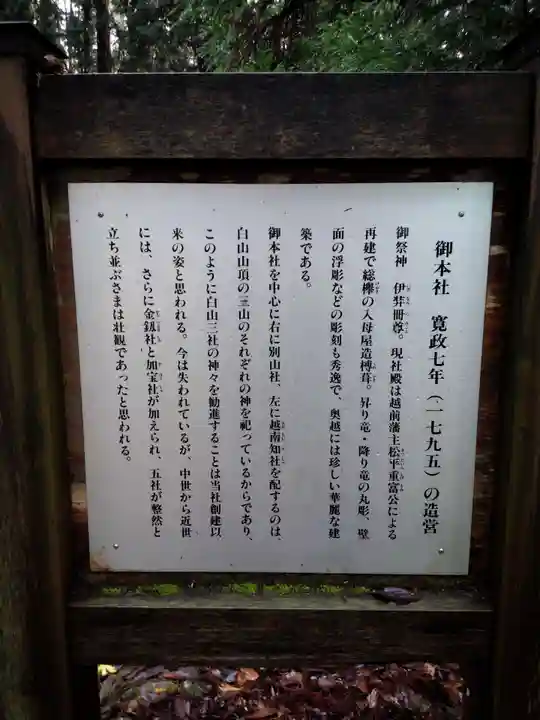 御本社　寛政七年（一七九五）の造営
御祭神　伊弉冊尊。現社殿は越前藩主松平重富公による
再建で総欅の入母屋造榑葺。昇り竜・降り竜の丸彫、壁
面の浮彫などの彫刻も秀逸で、奥越には珍しい華麗な建
築である。
御本社を中心に右に別山社、左に越南知社を配するのは、
白山山頂の三山のそれぞれの神を祀っているからであり、
このように白山三社の神々を勧進することは当社創建以
来の姿と思われる。今は失われているが、中世から近世
には、さらに金劔社と加宝社が加えられ、五社が整然と
立ち並ぶさまは壮観であったと思われる。